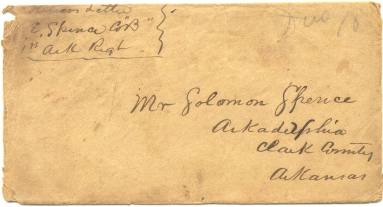 Soldiers Letter
E. Spence Co "B"
1st Ark Regt.
Due 10
Mr. Solomon Spence
Arkadelphia
Clark County
Arkansas